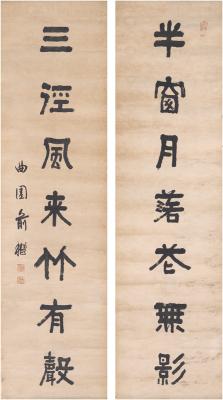 半窗月落花無影
三徑風来竹有聲
曲園俞樾